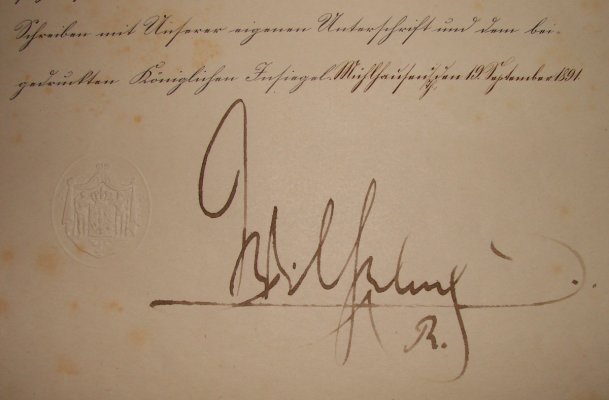 Schreiben mit Unserer eigenen Unterschrift und dem bei-
gedruckten Königlichen Insiegel. Mühlhausen i/Th, den 19. September 1891.
Wilhelm
R.